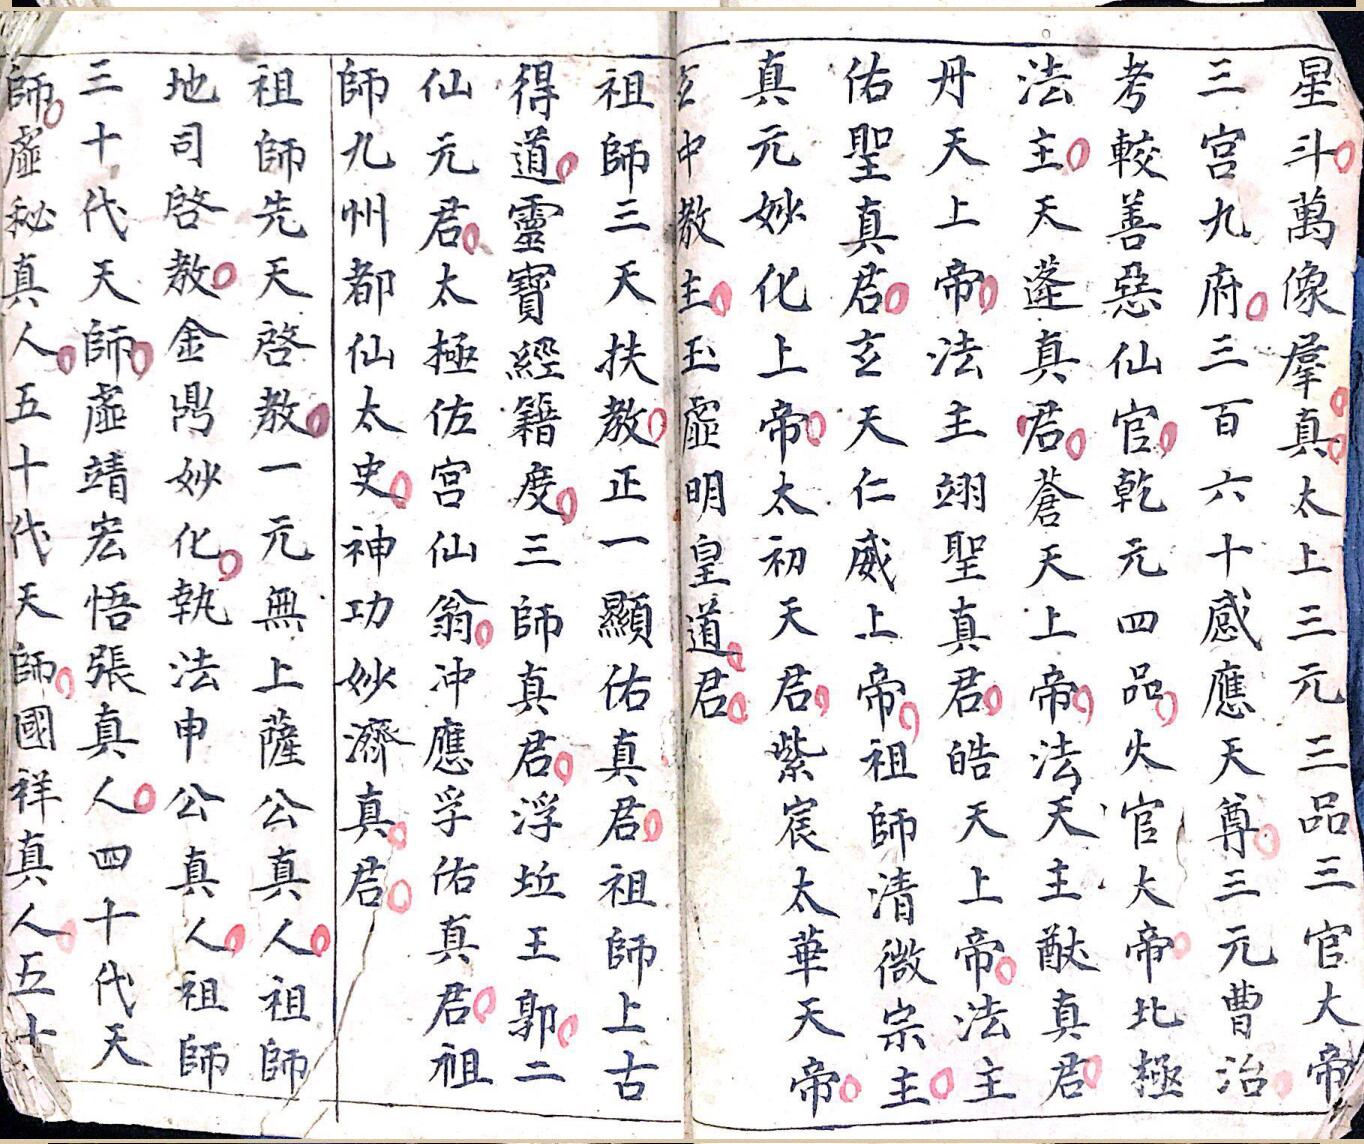 星斗萬像羣真太上三元三品三官大帝
三宫九府三百六十感應天尊三元曹治
考較善惡仙官乾元四品火官大帝北極
法主天蓬真君蒼天上帝法天主猷真君
丹天上帝法主翊聖真君皓天上帝法主
佑聖真君玄天仁威上帝祖師清微宗主
真元妙化上帝太初天君紫宸太華天帝
玄中教主玉虛明皇道君
祖師三天扶教正一顯佑真君祖師上古
得道靈寶經籍度三師真君浮坵王郭二
仙元君太極佐宫仙翁冲應孚佑真君祖
師九州都仙太史神功妙濟真君
祖師先天啓教一元無上薩公真人祖師
地司啓教金鼎妙化執法申公真人祖師
三十代天師虛靖宏悟張真人四十代天
師虛秘真人五十代天師國祥真人五十